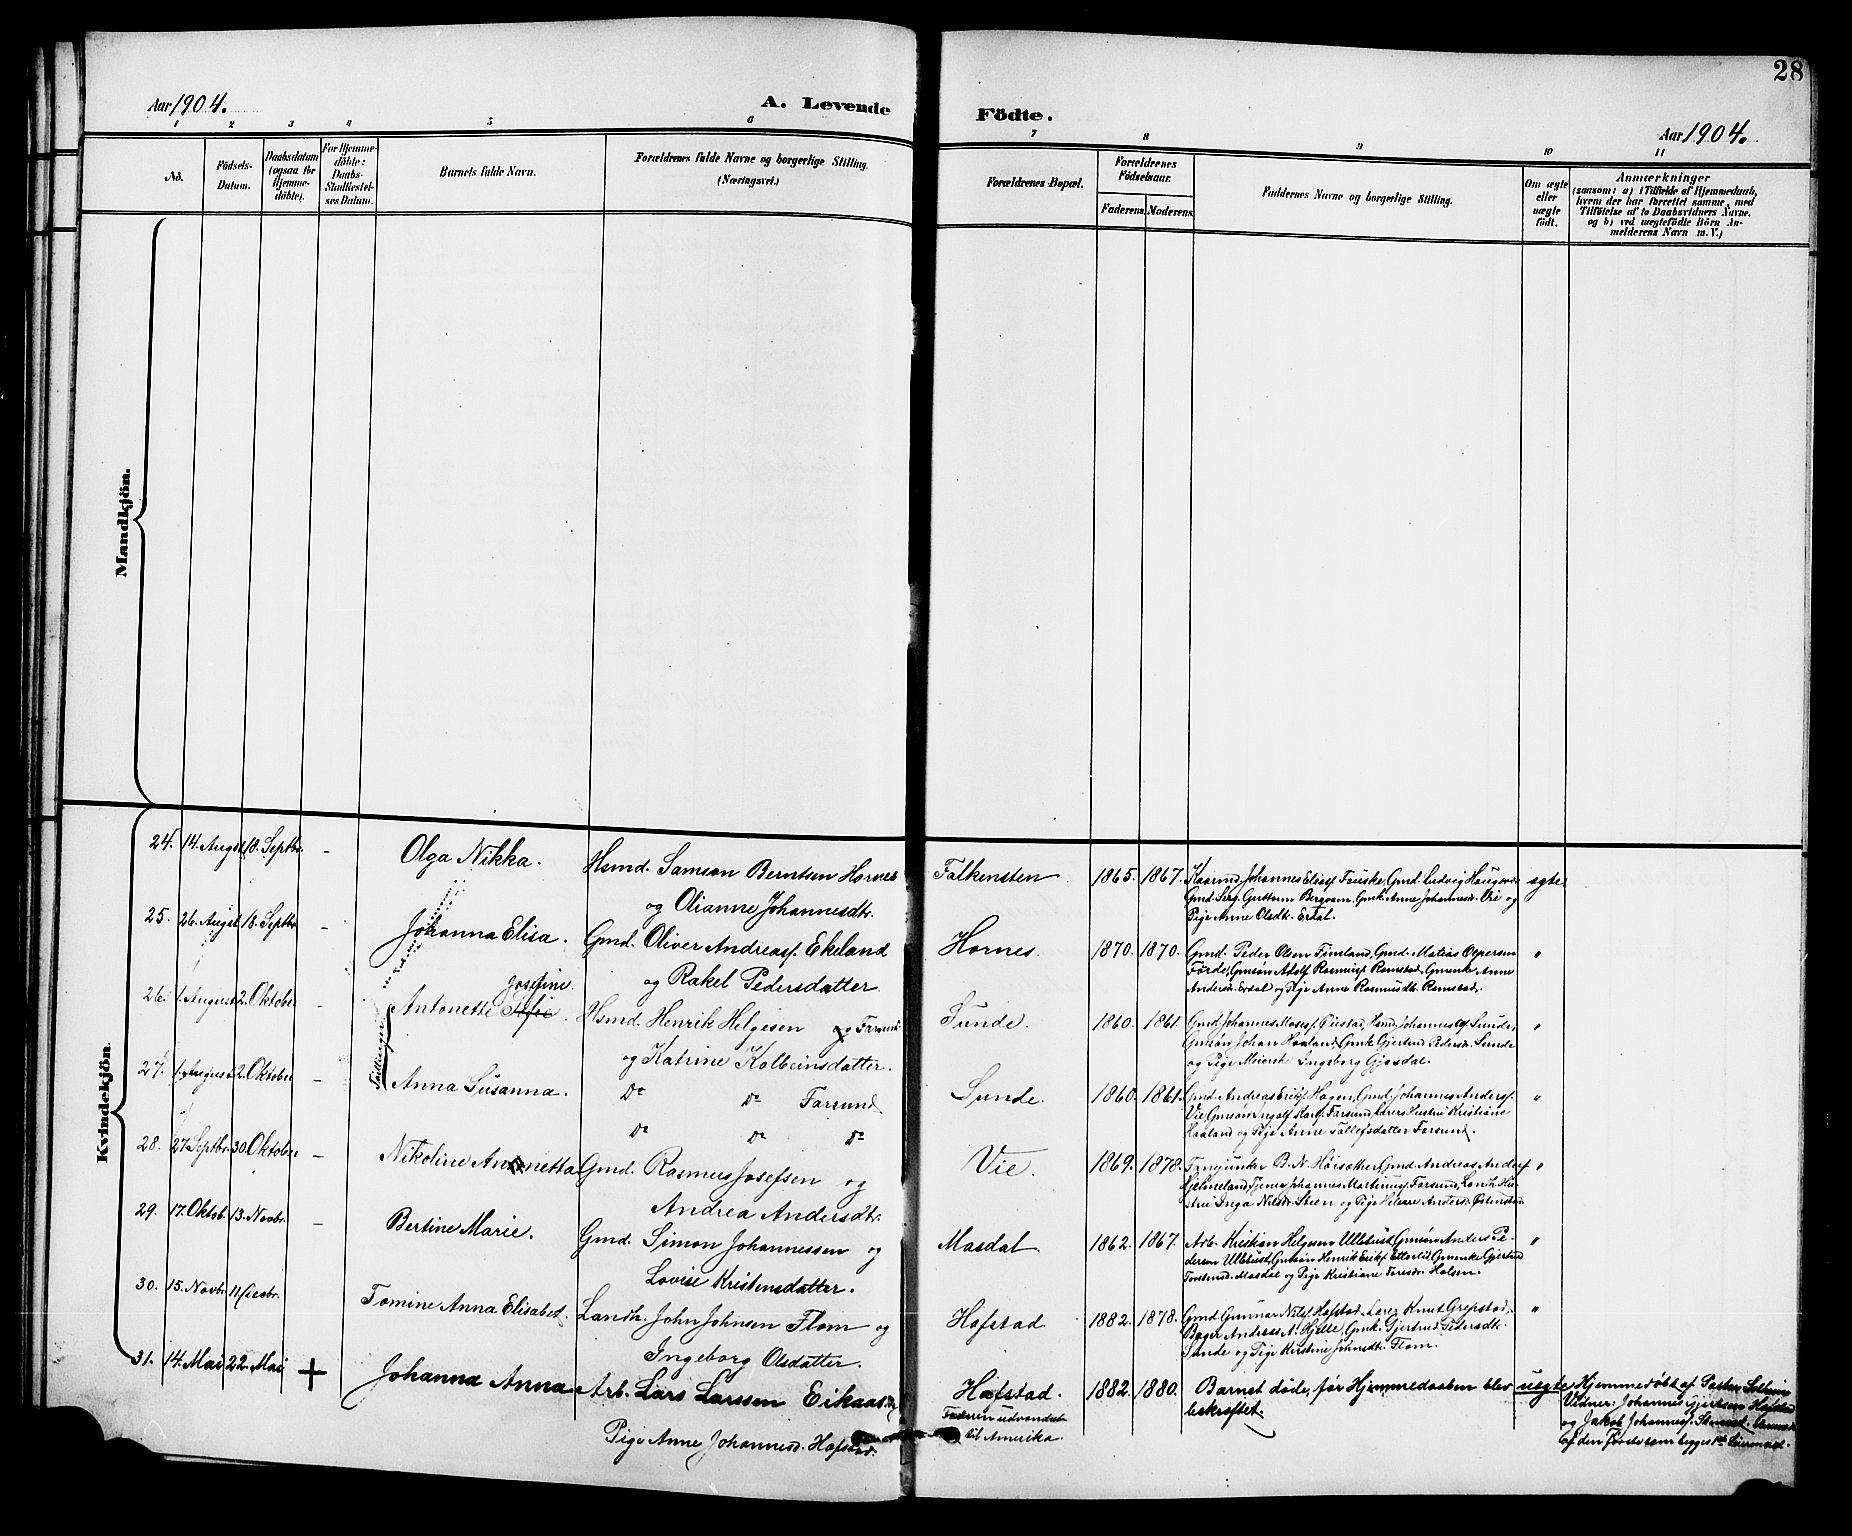 28
Aar 1904.
A. Levende
Födte.
Aar 1904.
1 2 3 4 5 6 7 8 9 10 11
No.
Födsels-
Datum.
Daabsdatum
(ogsaa for
Hjemme-
döbte).
For Hjemme-
döbte:
Daabs-
Stadfæstel-
ses Datum.
Barnets fulde Navn.
Forældrenes fulde Navne og borgerlige Stilling
(Næringsvei.)
Forældrenes Bopæl.
Forældrenes
Födselsaar.
Faderens.
Moderens.
Faddernes Navne og borgerlige Stilling.
Om ægte
eller
uægte
födt.
Anmærkninger
(saasom: a) i Tilfælde af Hjemmedaab,
hvem der har forrettet samme, med
Tilföielse af to Daabsvidners Navne.
og b) ved uægtefödte Börn An-
melderens Navn m. V.)
Mandkjön.
Kvindekjön.
24. 14. August 18. Septbr. -
Olga Nikka.
Hsmd. Samson Berntsen Hornes
og Olianne Johannesdtr.
Falkensten
1865. 1867.
Kaarmd Johannes Eliasf Fauske, Gmd. Ludvig Haugen
Gmd. Serg. Guttorm Bergvam, Gmk. Anne Johannesd. Øie og
Pige Anne Olsdt. Erdal.
ægte
25. 26. August 18. Septbr -
Johanna Elisa.
Gmd. Oliver Andreasf. Ekeland
og Rakel Pedersdatter.
Hornes.
1870. 1870.
Gmd. Peder Olsen Fimland, Gmd. Matias Oepersen
Førde, Gmsøn Adolf Rasmusf Ramstad, Gmenke Anne
Andersd. Erdal og Pige Anne Rasmusdt. Ramstad.
"
26. 1. August 2. Oktober -
Josefine.
Antonette Afie.
Tvillinger
Hsmd. Henrik Helgesen og Farsund
og Katrine Kolbeinsdatter.
Sunde.
1860. 1861.
Gmd. Johannes Mosesf. Øiestad, Hsmd. Johannes Sunde,
Gmsøn Johan Haaland, Gmk. Gjertrud Pedersd. Sunde
og Pige Ingeborg Gjesdal.
"
27. 1. August 2. Oktober -
Anna Susanna.
Do Do Farsund
Do Do Do
Sunde.
1860. 1861.
Gmd. Andreas Erikf. Hagen, Gmd. Johannes Andersf.
Vie Gmsøn Ingolf Farsund, Lærer Hustru Kristiane
Haaland og Pige Anne Tollefsdatter Farsund.
"
28. 27. Septbr. 30. Oktober -
Nikoline Antonetta
Gmd. Rasmus Josefsen og
Andrea Andersdtr.
Vie.
1869. 1878.
Fanejunker B. N. Høisæther, Gmd. Andreas Andersf
Hjelmeland, Tjener Johannes Martinusf Farsund, Landh. Hu-
stru Inga Nilsdr. Steen og Pige Helene Andersd.
"
29. 17. Oktob. 13. Novbr. -
Bertine Marie.
Gmd. Simon Johannessen og
Lovise Kristensdatter.
Masdal.
1862. 1867.
Arb. Kristian Helgesen Ullebust, Gmsøn Anders Pe-
dersen Ullebust, Gmsøn Henrik Erikf. Etterlid, Gmenke Gjertrud
Torstensd. Masdal og Pige Kristiane Halsen.
"
30. 15. Novbr. 11. Decbr.
Tomine Anna Elisabet.
Landh. John Johnsen Flom og
Ingeborg Olsdatter.
Hafstad
1882. 1878.
Gmd. Gunnar Nilsf. Hafstad, Lærer Knut Grepstad,
Bager Andreas A. Hjelle, Gmk. Gjertrud Pedersdt.
Sunde og Pige Kirstine Johnsdt. Flom.
"
31. 14. Mai 22. Mai +
Johanna Anna
Arb. Lars Larssen Eikaas og
Pige Anne Johannesd. Hafstad.
Hafstad.
Faderen udvandret
til Amerika.
1882. 1880.
Barnet døde, før Hjemmedaaben blev
bekræftet.
uægte
Hjemmedøbt af Pastor Solheim
Vidner: Johannes Gjertsen Hafstad
og Jakob Johannesf.
af den første som begges 1ste Leiermaal.